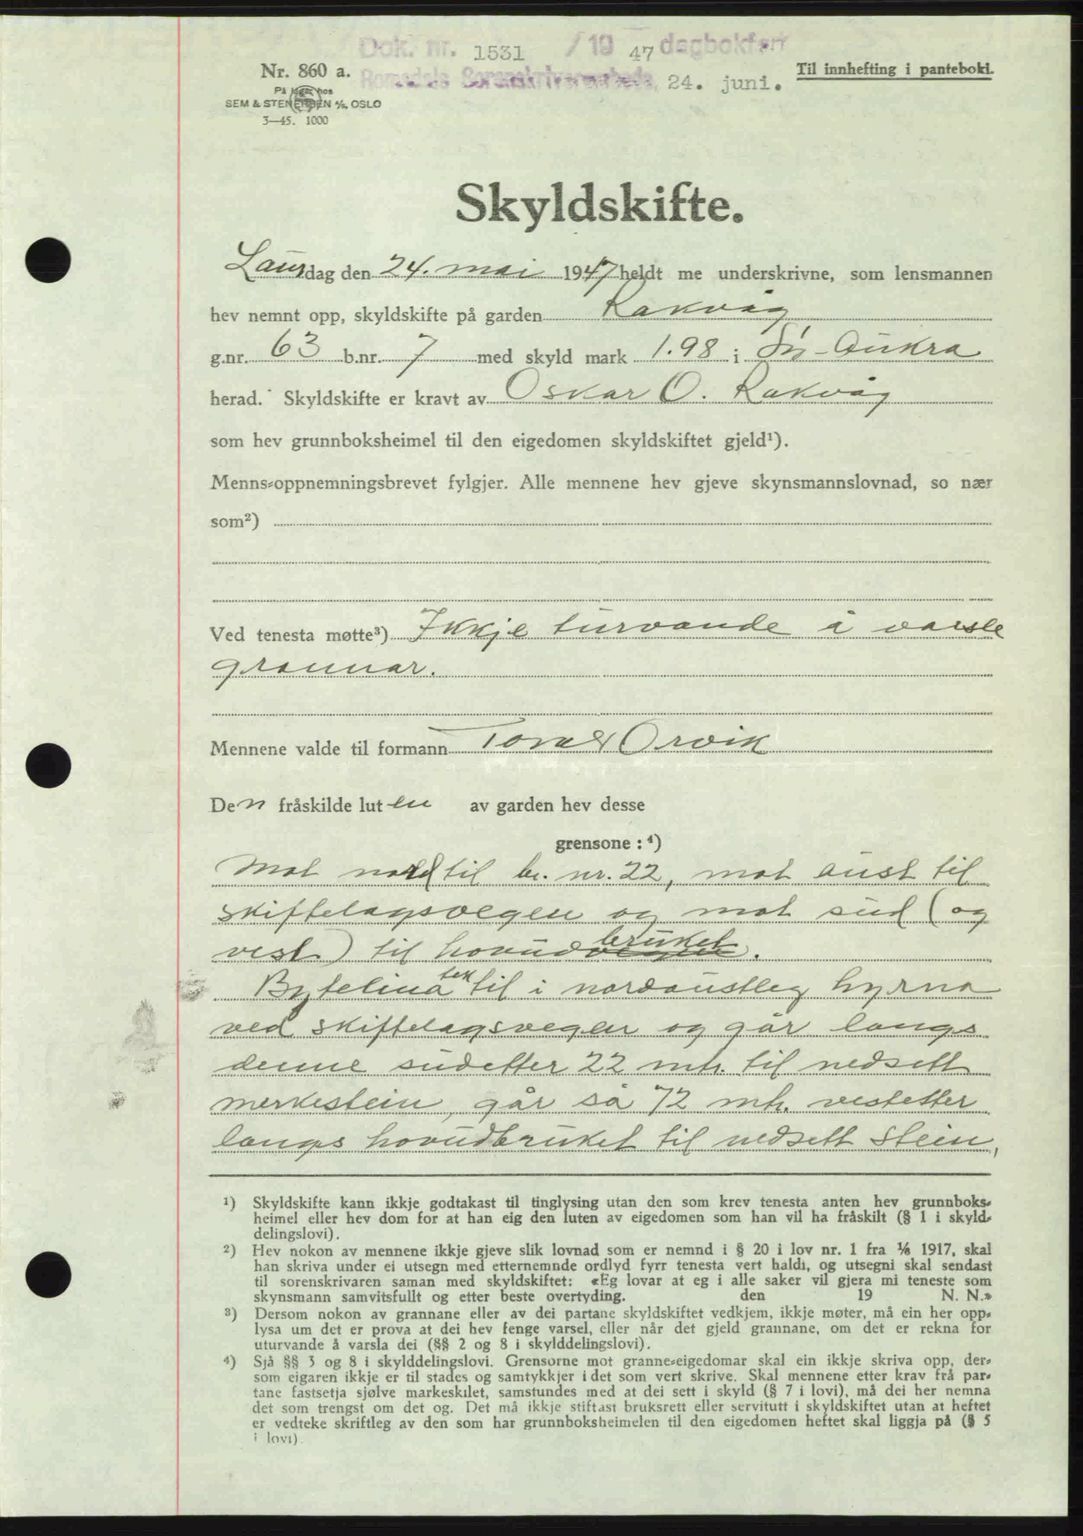 Dok. nr. 1531 /19 47 dagbokført
Romsdals Sorenskriverembede, 24. juni.
Nr. 860 a.
Til innhefting i pantebok.
På lager hos
SEM & STENERSEN A/S, OSLO
3—45. 1000
Skyldskifte.
Laurdag den 24. mai 1947 heldt me underskrivne, som lensmannen
hev nemnt opp, skyldskifte på garden Rakvåg
g.nr. 63 b.nr. 7 med skyld mark 1.98 i Sr-Aukra
herad. Skyldskifte er kravt av Oskar O. Rakvåg
som hev grunnboksheimel til den eigedomen skyldskiftet gjeld¹).
Menns-oppnemningsbrevet fylgjer. Alle mennene hev gjeve skynsmannslovnad, so nær
som²)
Ved tenesta møtte³) Ikkje turvande å varsle
grannar.
Mennene valde til formann Tore Orvik
Den fråskilde luten av garden hev desse
grensone : ⁴)
Mot nord til br. nr. 22, mot aust til
skiftelagsvegen og mot sud (og
vest) til hovudbruket.
Bytelina tek til i nordaustleg hyrna
ved skiftelagsvegen og går langs
denne sudetter 22 mtr. til nedsett
merkestein, går så 72 mtr. vestetter
langs hovudbruket til nedsett stein,
¹) Skyldskifte kann ikkje godtakast til tinglysing utan den som krev tenesta anten hev grunnboks-
heimel eller hev dom for at han eig den luten av eigedomen som han vil ha fråskilt (§ 1 i skyld-
delingslovi).
²) Hev nokon av mennene ikkje gjeve slik lovnad som er nemnd i § 20 i lov nr. 1 fra ⅛ 1917, skal
han skriva under ei utsegn med etternemnde ordlyd fyrr tenesta vert haldi, og utsegni skal sendast
til sorenskrivaren saman med skyldskiftet: «Eg lovar at eg i alle saker vil gjera mi teneste som
skynsmann samvitsfullt og etter beste overtyding. den 19 N. N.»
³) Dersom nokon av grannane eller av dei partane skyldskiftet vedkjem, ikkje møter, må ein her opp-
lysa um det er prova at dei hev fenge varsel, eller når det gjeld grannane, om det er rekna for
uturvande å varsla dei (§§ 2 og 8 i skylddelingslovi).
⁴) Sjå §§ 3 og 8 i skylddelingslovi. Grensorne mot granne-eigedomar skal ein ikkje skriva opp, der-
som eigaren ikkje er til stades og samtykkjer i det som vert skrive. Skal mennene etter krav frå par-
tane fastsetja sjølve markeskilet, samstundes med at dei sett i skyld (§ 7 i lovi), må dei her nemna
det som trengst om det og. Det må ikkje stiftast bruksrett eller servitutt i skyldskiftet utan at heftet
er vedteke skriftleg av den som har grunnboksheimelen til den eigedomen heftet skal liggja på (§ 5
i lovi).